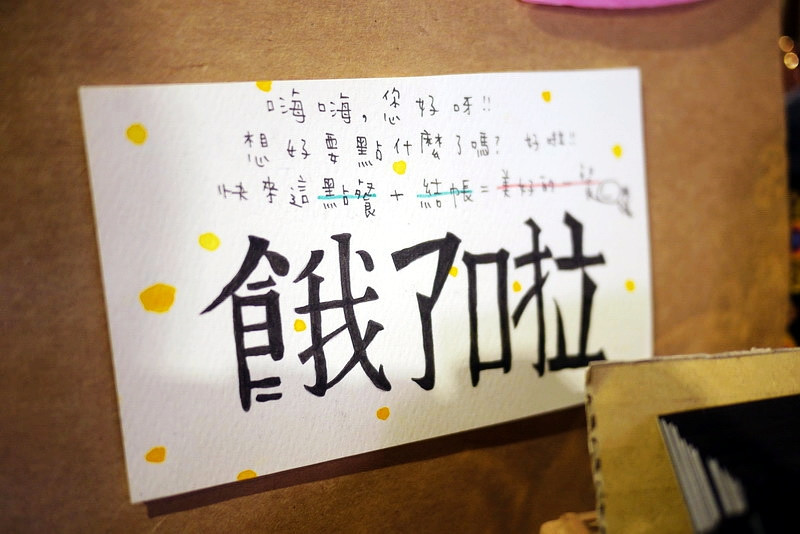 嗨嗨,您好呀!!
想好要點什麼了嗎? 好啦!!
快來這點餐 + 結帳 = 美好的
餓了啦